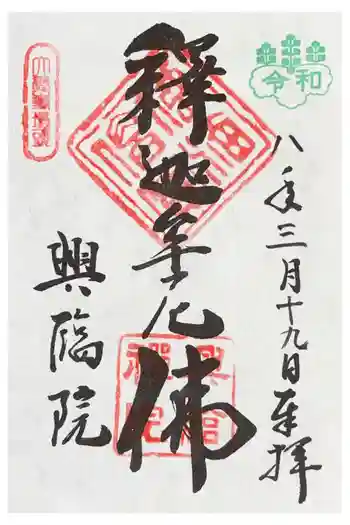 令和
八年三月十九日奉拝
釋迦牟尼佛
興臨院